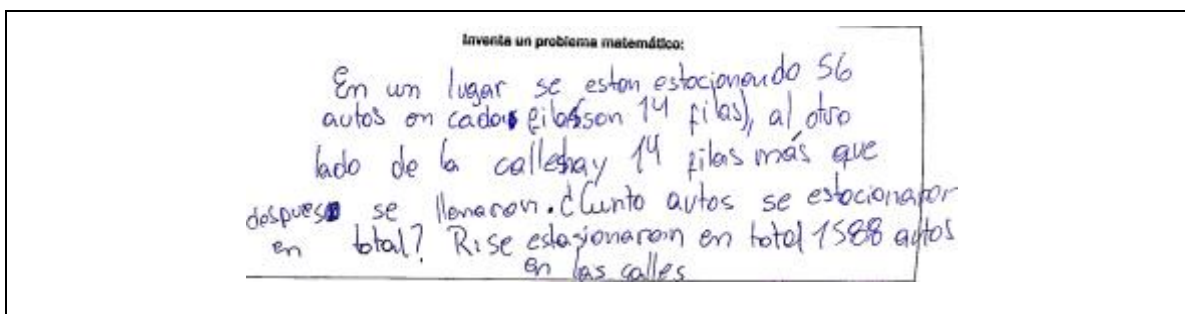 Inventa un problema matemático:
En un lugar se estan estacionando 56
autos en cada fila(son 14 filas), al otro
lado de la calle hay 14 filas más que
despues se llenaron. ¿Cunto autos se estacionaron
en total? R: se estasionaron en total 1588 autos
en las calles